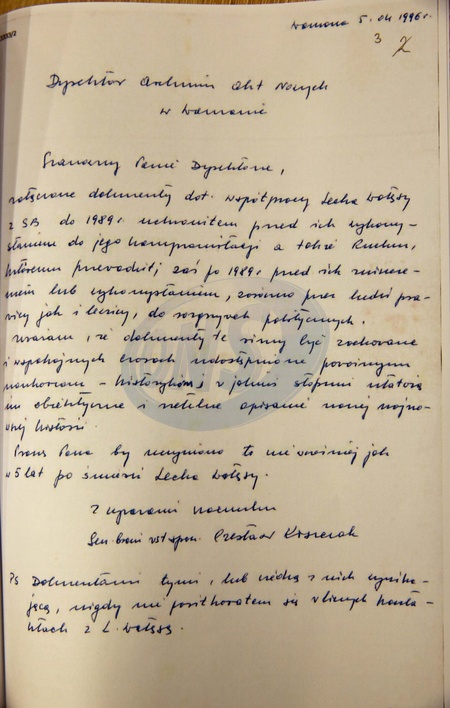 Warszawa 5. 04 1996 r.
3 2
Dyrektor Archiwum Akt Nowych
w Warszawie
Szanowny Panie Dyrektorze,
załączone dokumenty dot. współpracy Lecha Wałęsy
z SB do 1989 r. uchroniłem przed ich wykorzy-
staniem do jego kompromitacji a także Ruchu,
któremu przewodził, zaś po 1989 r przed ich zniszcze-
niem lub wykorzystaniem, zarówno przez ludzi pra-
wicy jak i lewicy, do rozgrywek politycznych.
Uważam, że dokumenty te winny być zachowane
i w spokojnych czasach udostępnione poważnym
naukowcom – historykom i w jakimś stopniu ułatwią
im obiektywne i rzetelne opisanie naszej najno-
wszej historii.
Proszę Pana by uczyniono to nie wcześniej jak
w 5 lat po śmierci Lecha Wałęsy.
Z wyrazami szacunku
Gen. broni vst. spocz. Czesław Kiszczak
Ps Dokumentami tymi, lub wiedzą z nich wynika-
jącą, nigdy nie posiłkowałem się w licznych konta-
ktach z L. Wałęsą.